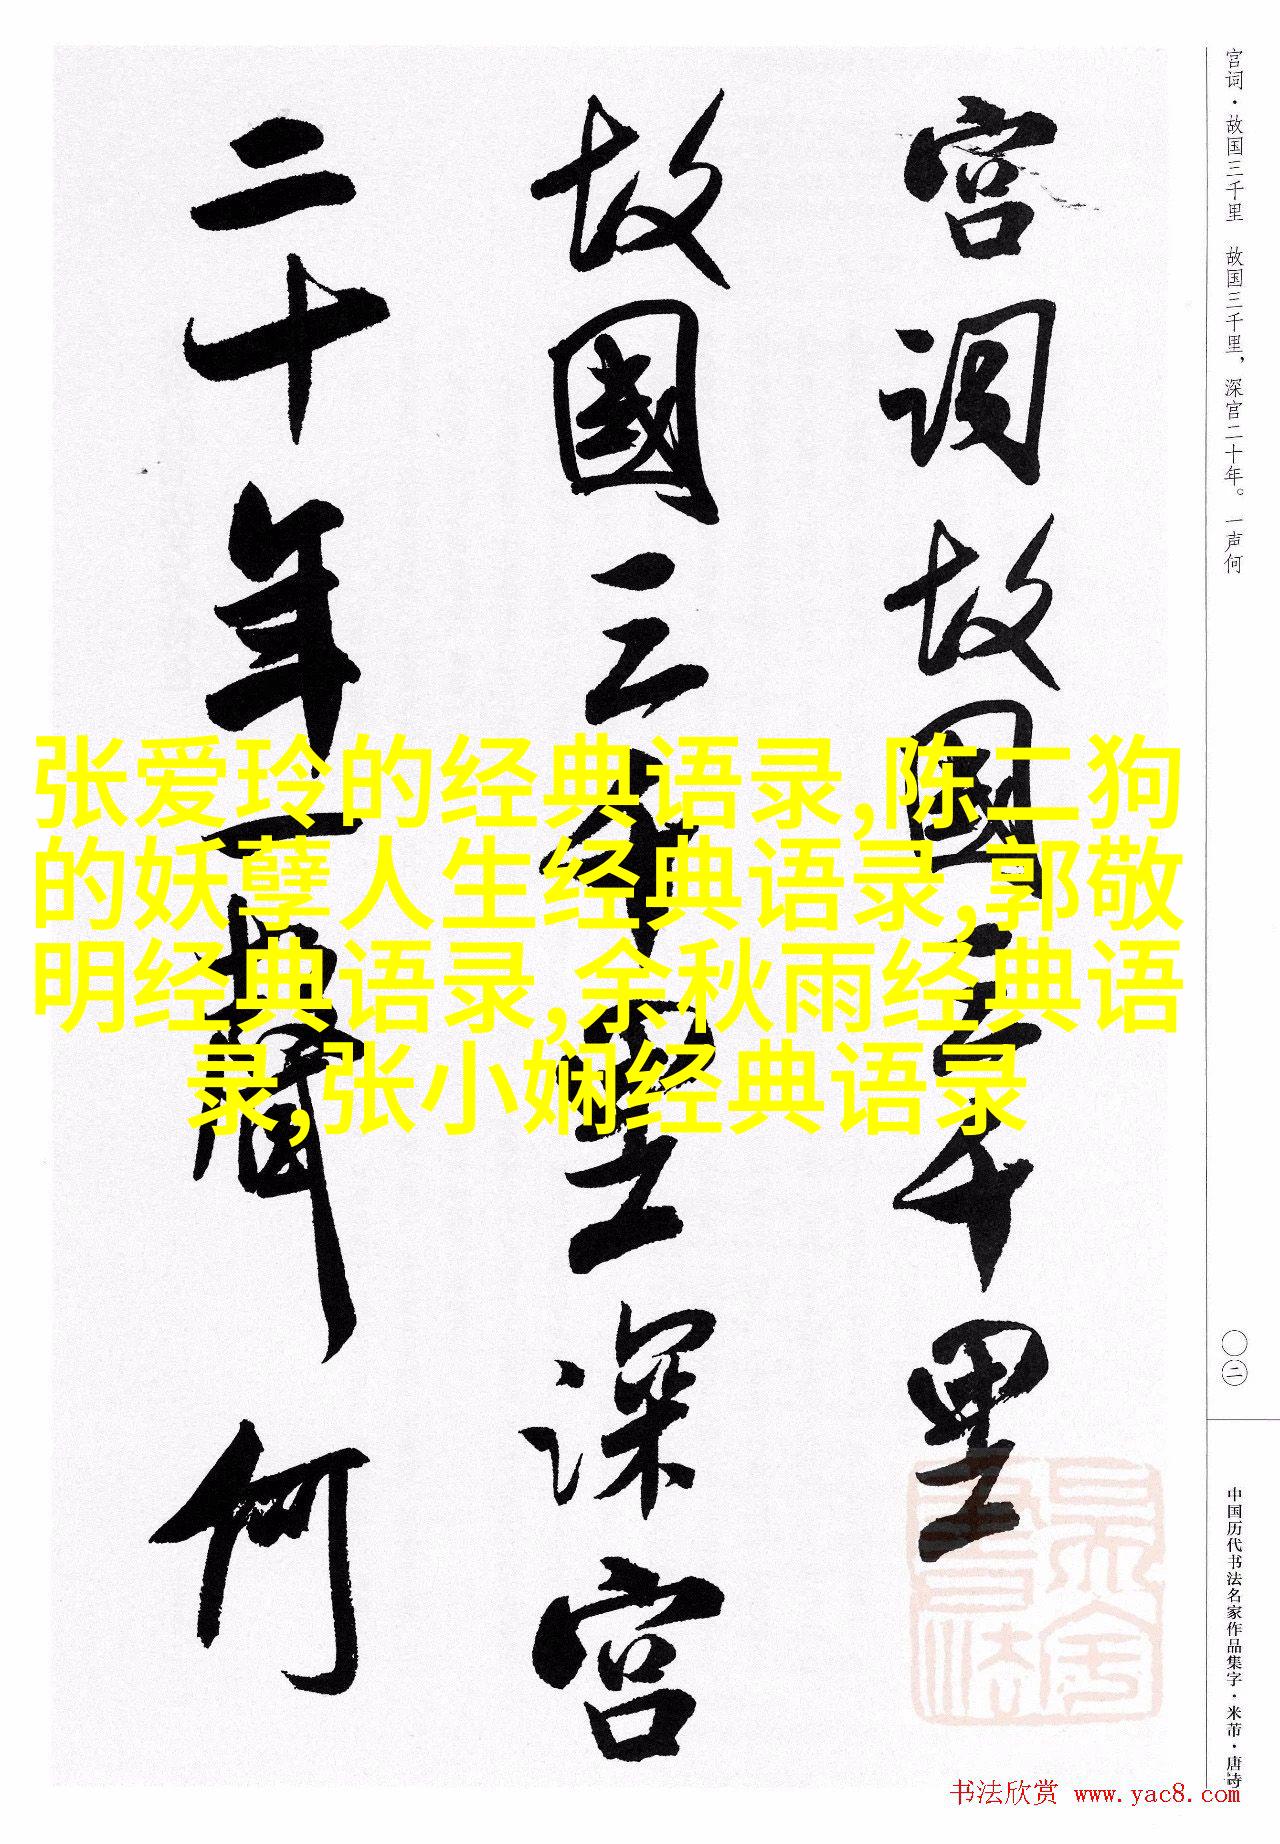 宫词·故国三千里 故国三千里，深宫二十年。一声何
宫词故國三千里
故國三千里深宫
二十年一聲何
张爱玲的经典语录,陈二狗
的妖孽人生经典语录,郭敬
明经典语录,余秋雨经典语
录,张小娴经典语录
〇二
中国历代书法名家作品集字·米芾·唐诗
书法欣赏 www.yac8.com